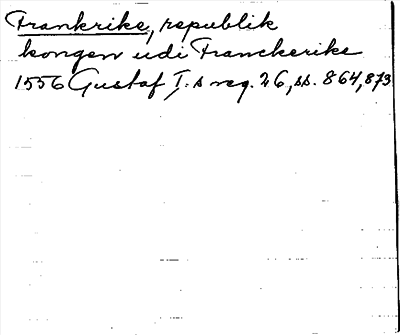 Frankrike, republik
kongen udi Franckerike
1556 Gustaf I.s reg. 26, ss. 864, 873